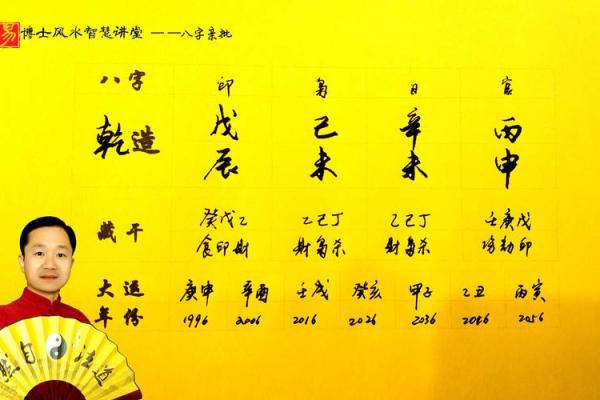 易 博士风水智慧讲堂 ——八字亲批
八字 印 枭 日 官
乾造 戊辰 己未 辛未 丙申
藏干 癸戊乙 乙己丁 乙己丁 壬庚戊
食印财 财枭杀 财枭杀 伤劫印
大运 庚申 辛酉 壬戌 癸亥 甲子 乙丑 丙寅
年份 1996 2006 2016 2026 2036 2046 2056
然自法道